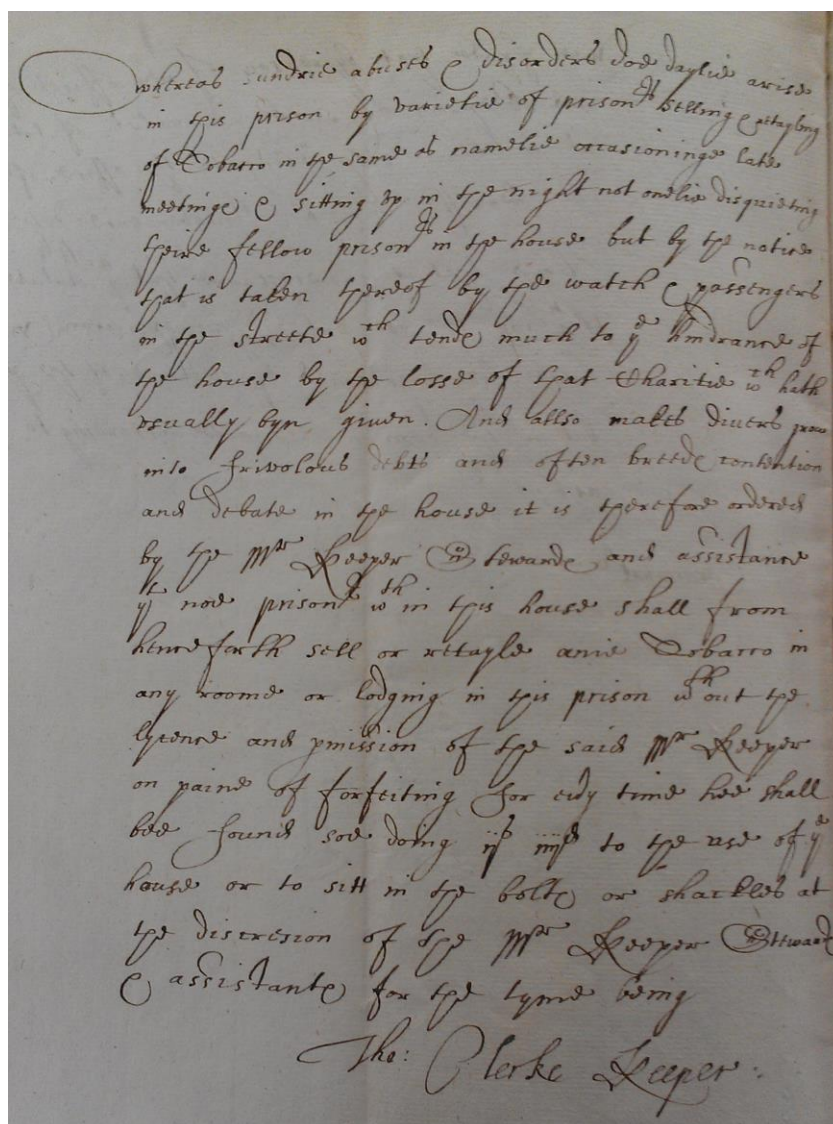 whereas sundrie abuses & disorders doe daylie arise
in this prison by varietie of prisonrs selling & retayling
of Tobacco in the same as namelie occasioninge late
meetings & sitting up in the night not onelie disquieting
theire fellow prisonrs in the house but by the notice
that is taken thereof by the watch & passengers
in the streete wch tends much to ye hindrance of
the house by the losse of that Charitie wch hath
usually byn given. And allso makes divers grow
into frivolous debts and often breeds contention
and debate in the house it is therefore ordered
by the Mr Keeper Stewards and assistance
yt noe prisonr wth in this house shall from
henceforth sell or retayle anie Tobacco in
any roome or lodging in this prison wth out the
lycence and pmission of the said Mr Keeper
on paine of forfeiting for evry time hee shall
bee found soe doing iijs iiijd to the use of ye
house or to sitt in the bolts or shackles at
the discresion of the Mr Keeper Steward
& assistants for the tyme being
Tho: Clerke Keeper.